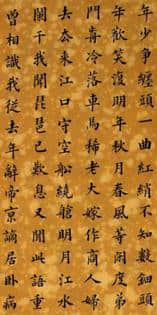 年少爭纏頭一曲紅綃不知數鈿頭
年歡笑復明年秋月春風等閒度弟
門前冷落車馬稀老大嫁作商人婦
去来江口守空船繞艙明月江水
闌干我聞琵琶已歎息又聞此語重
曾相識我從去年辭帝京謫居臥病